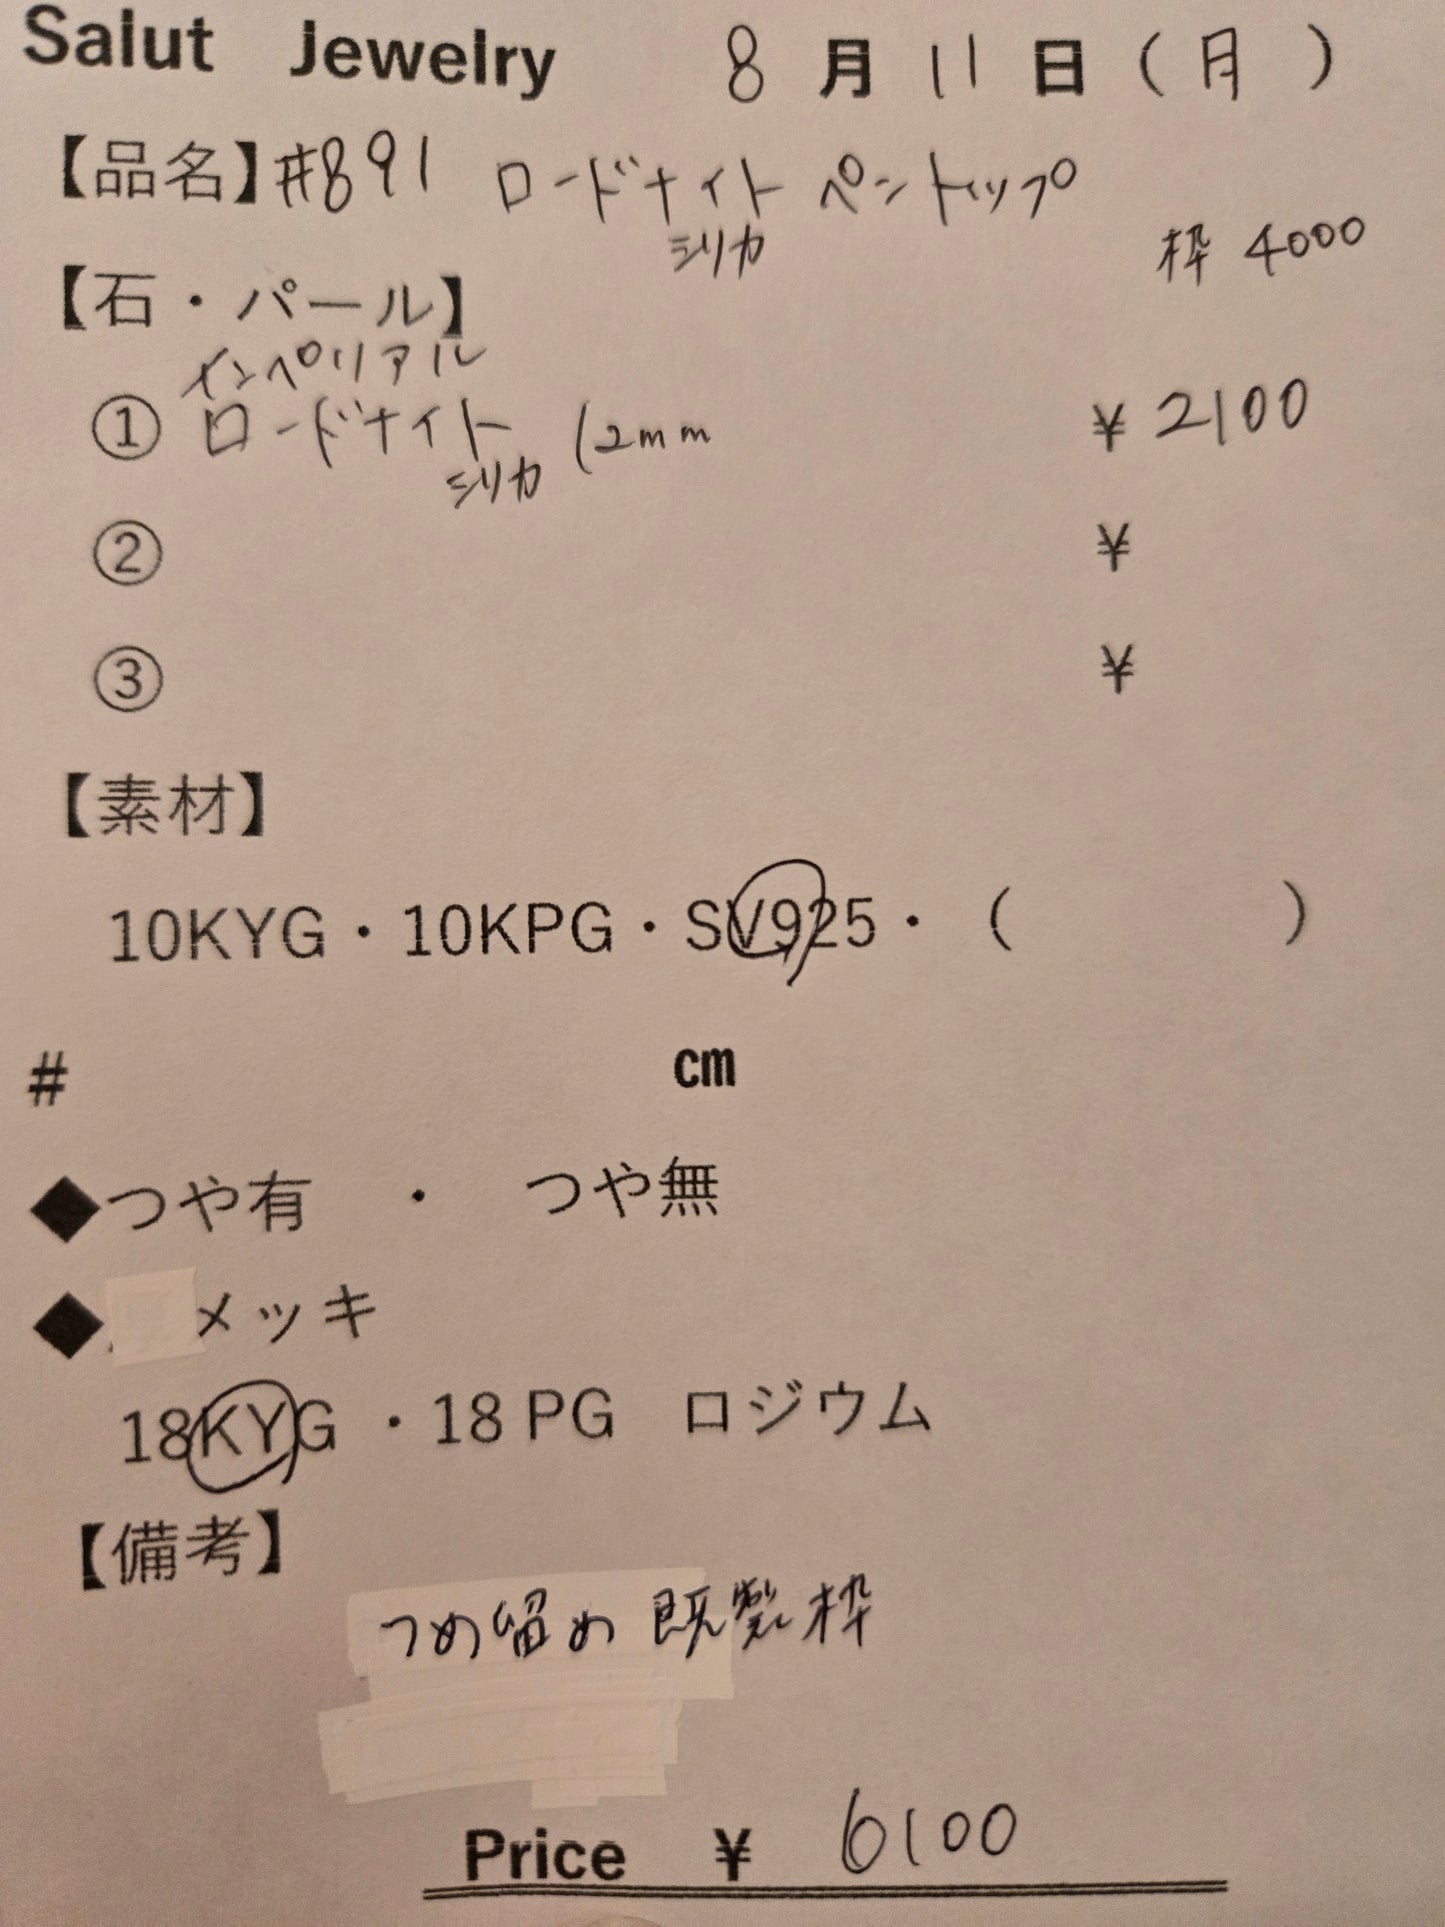 Salut Jewelry 8月11日(月)
【品名】#891 ロードナイト ペントップ
シリカ
枠 4000
【石・パール】
インペリアル
① ロードナイト 12mm ¥2100
シリカ
② ¥
③ ¥
【素材】
10KYG・10KPG・SV925・( )
# cm
◆つや有 ・ つや無
◆メッキ
18KYG ・18 PG ロジウム
【備考】
つめ留め 既製枠
Price ¥ 6100